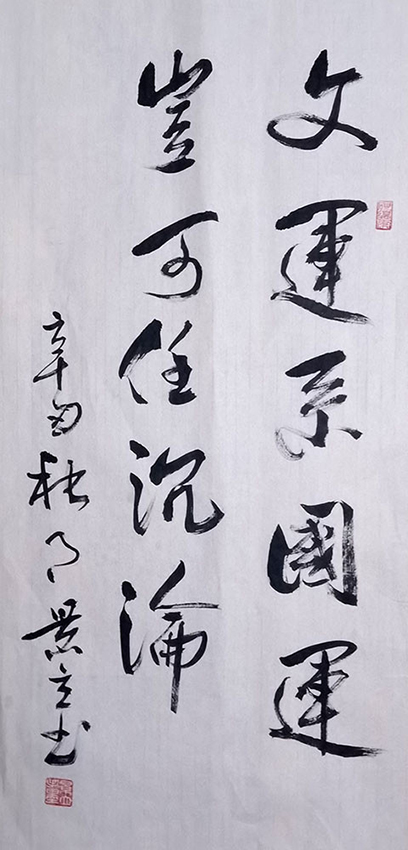 文運系國運
豈可任沉淪
辛丑秋月景立书